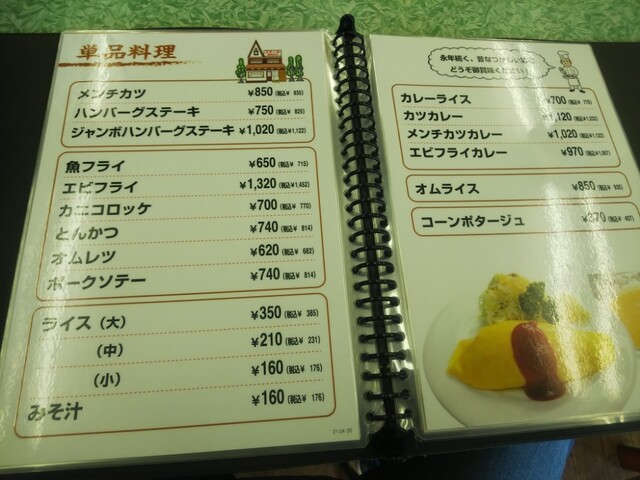 単品料理
メンチカツ ¥850(税込¥ 935)
ハンバーグステーキ ¥750(税込¥ 825)
ジャンボハンバーグステーキ ¥1,020(税込¥1,122)
魚フライ ¥650(税込¥ 715)
エビフライ ¥1,320(税込¥1,452)
カニコロッケ ¥700(税込¥ 770)
とんかつ ¥740(税込¥ 814)
オムレツ ¥620(税込¥ 682)
ポークソテー ¥740(税込¥ 814)
ライス(大) ¥350(税込¥ 385)
(中) ¥210(税込¥ 231)
(小) ¥160(税込¥ 176)
みそ汁 ¥160(税込¥ 176)
永年続く、昔なつかしい
どうぞ御賞味ください!
カレーライス ¥700(税込¥ 770)
カツカレー ¥1,120(税込¥1,232)
メンチカツカレー ¥1,020(税込¥1,122)
エビフライカレー ¥970(税込¥1,067)
オムライス ¥850(税込¥ 935)
コーンポタージュ ¥370(税込¥ 407)